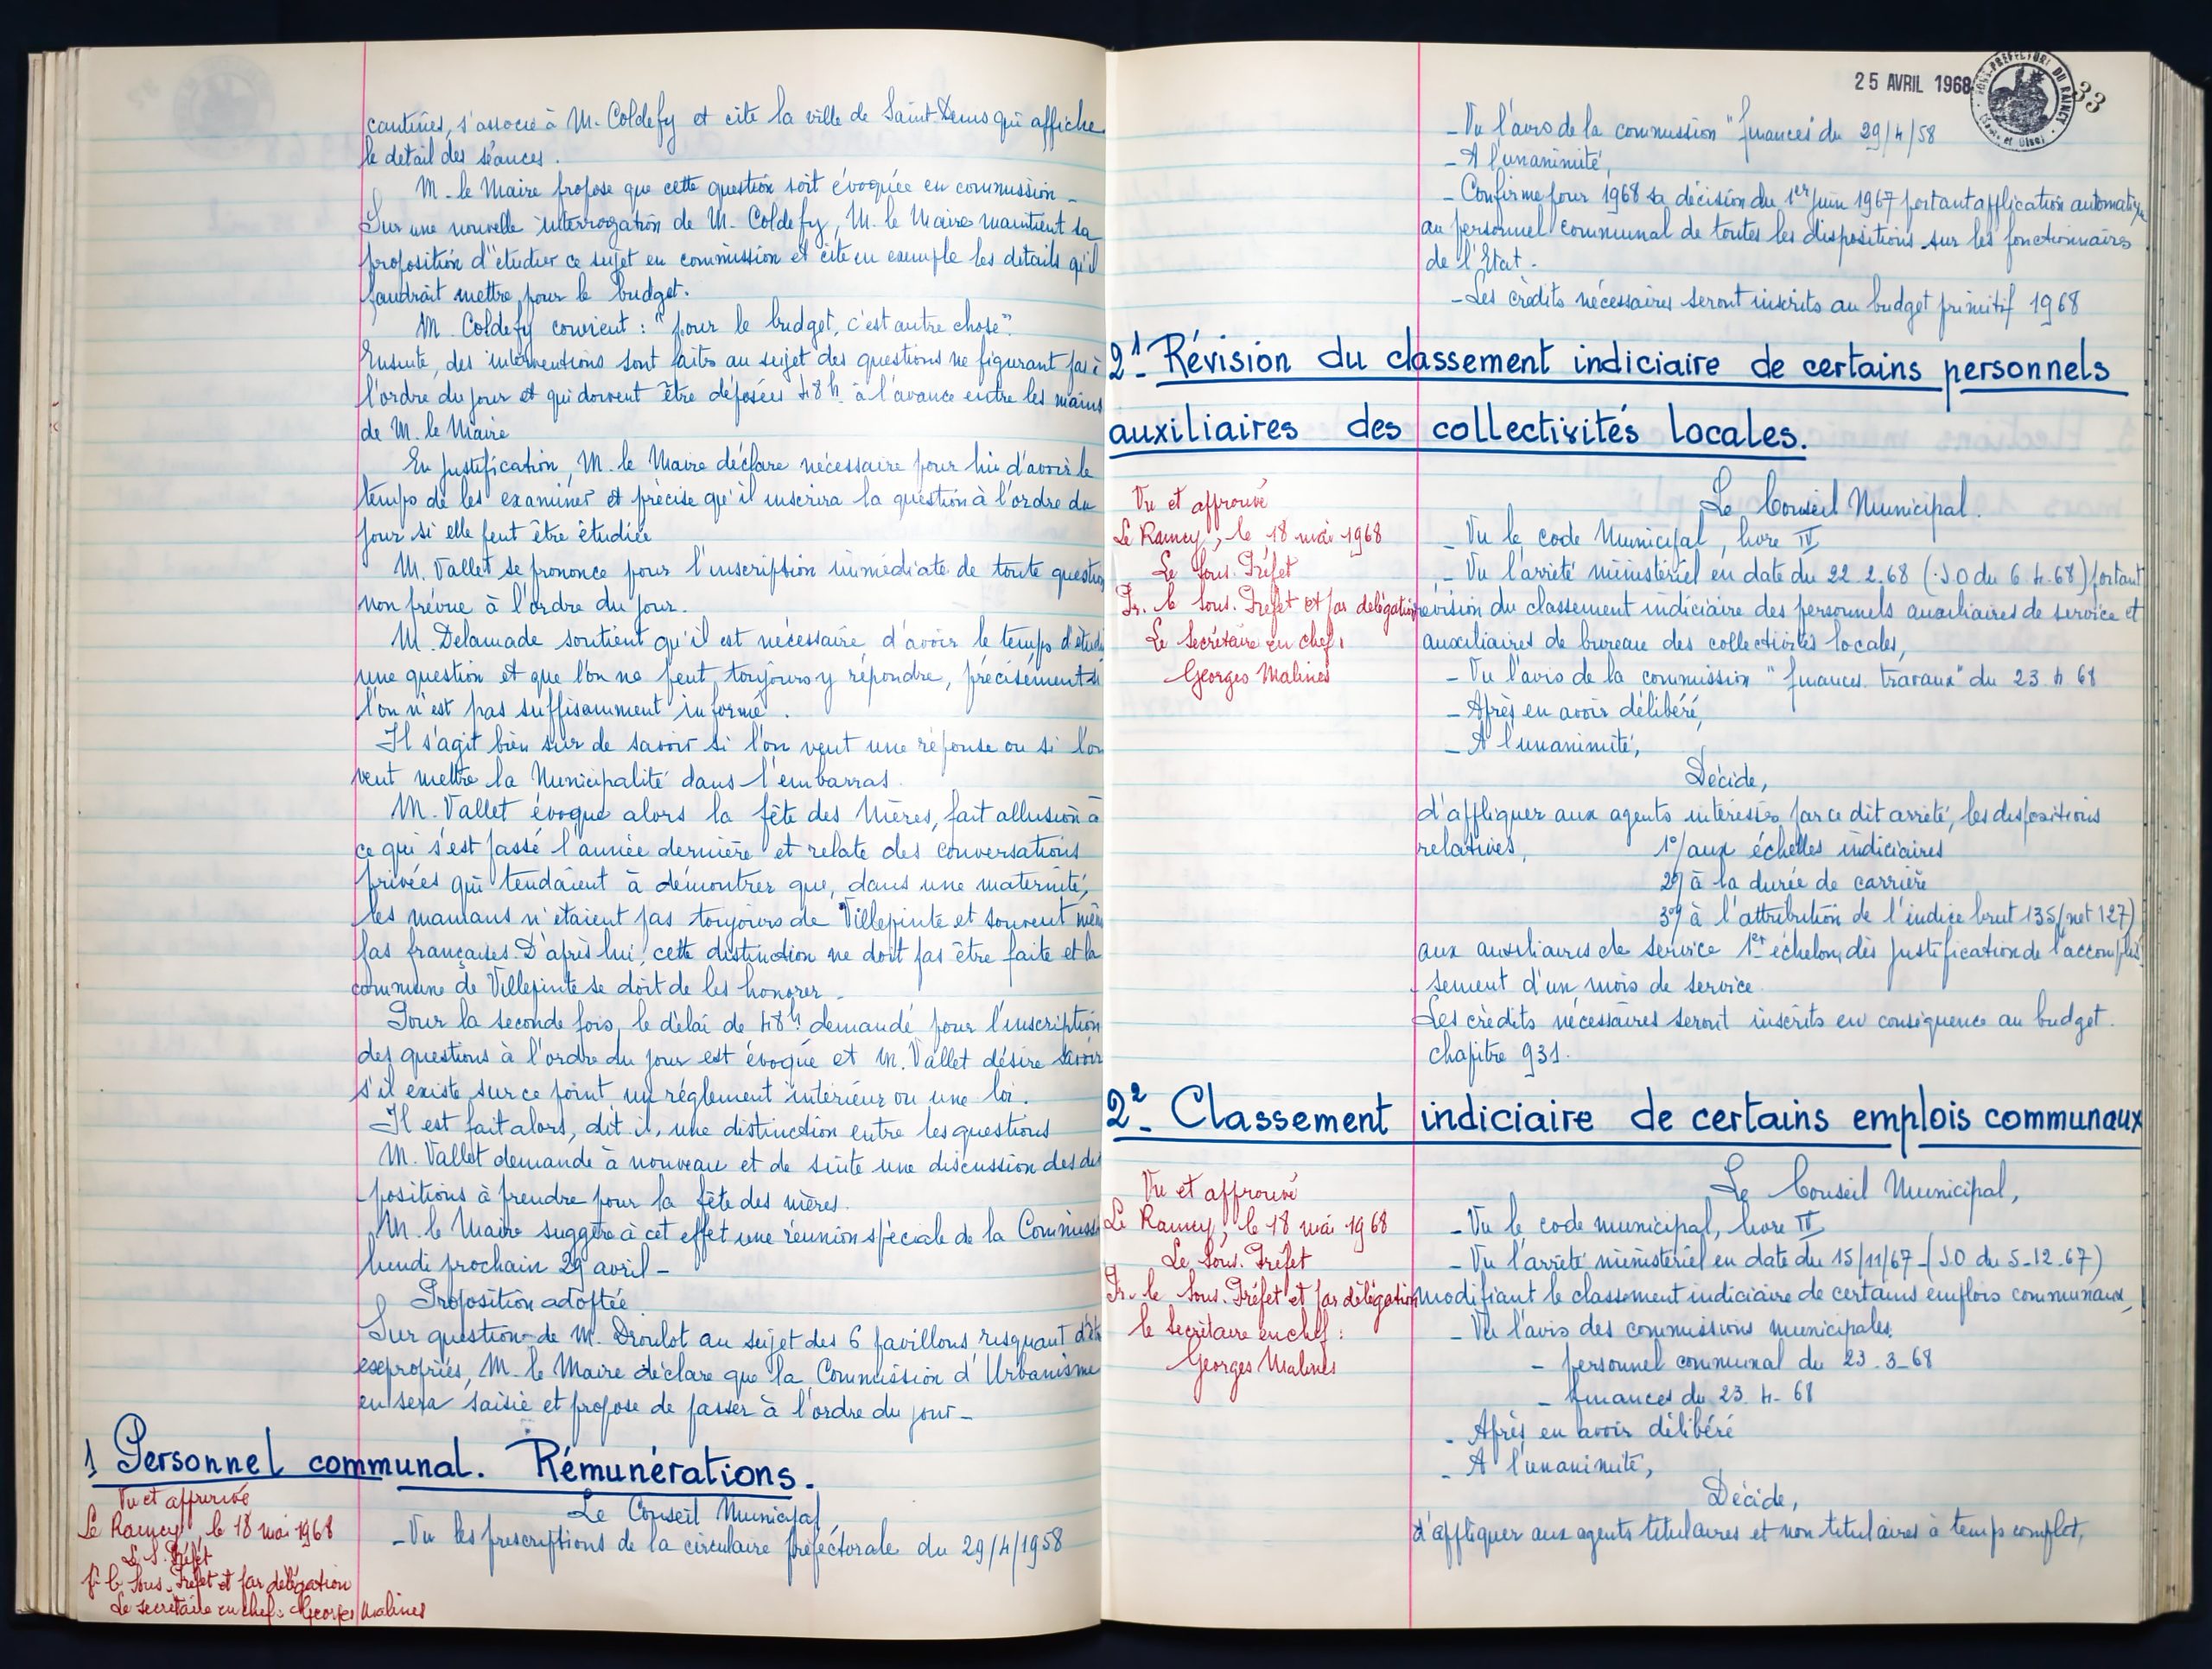 cantines, s'associe à M. Coldefy et cite la ville de Saint-Denis qui affiche
le détail des séances.
M. le Maire propose que cette question soit évoquée en commission -
Sur une nouvelle interrogation de M. Coldefy, M. le Maire maintient sa
proposition d'étudier ce sujet en commission et cite en exemple les détails qu'il
faudrait mettre pour le budget.
M. Coldefy convient : "pour le budget, c'est autre chose".
Ensuite, des interventions sont faites au sujet des questions ne figurant pas à
l'ordre du jour et qui doivent être déposées 48h. à l'avance entre les mains
de M. le Maire
En justification, M. le Maire déclare nécessaire pour lui d'avoir le
temps de les examiner et précise qu'il inscrira la question à l'ordre du
jour si elle peut être étudiée
M. Vallet se prononce pour l'inscription immédiate de toute question
non prévue à l'ordre du jour.
M. Delamade soutient qu'il est nécessaire d'avoir le temps d'étudi
une question et que l'on ne peut toujours y répondre, précisément si
l'on n'est pas suffisamment informé.
Il s'agit bien sûr de savoir si l'on veut une réponse ou si l'on
veut mettre la Municipalité dans l'embarras.
M. Vallet évoque alors la fête des Mères, fait allusion à
ce qui s'est passé l'année dernière et relate des conversations
privées qui tendaient à démontrer que, dans une maternité,
les mamans n'étaient pas toujours de Villepinte et souvent même
pas françaises. D'après lui, cette distinction ne doit pas être faite et la
commune de Villepinte se doit de les honorer -
Pour la seconde fois, le délai de 48h demandé pour l'inscription
des questions à l'ordre du jour est évoqué et M. Vallet désire savoir
s'il existe sur ce point un réglement intérieur ou une loi.
Il est fait alors, dit il, une distinction entre les questions
M. Vallet demande à nouveau et de suite une discussion des dis
positions à prendre pour la fête des mères.
M. le Maire suggère à cet effet une réunion spéciale de la Commiss
lundi prochain 29 avril -
Proposition adoptée.
Sur question de M. Droulot au sujet des 6 pavillons risquant d'être
expropriés, M. le Maire déclare que la Commission d'Urbanisme
en sera saisie et propose de passer à l'ordre du jour -
1 Personnel communal. Rémunérations.
Vu et approuvé
Le Raincy, le 18 mai 1968
Le S. Préfet
Pr le Sous. Préfet et par délégation
Le secrétaire en chef : Georges Malines
Le Conseil Municipal
- Vu les prescriptions de la circulaire préfectorale du 29/4/1958
25 AVRIL 1968
SOUS-PRÉFECTURE DU RAINCY
(Seine et Oise)
33
- Vu l'avis de la commission "finances" du 29/4/58
- A l'unanimité,
- Confirme pour 1968 sa décision du 1er juin 1967 portant application automatique
au personnel communal de toutes les dispositions sur les fonctionnaires
de l'Etat.
- Les crédits nécessaires seront inscrits au budget primitif 1968
2¹- Révision du classement indiciaire de certains personnels
auxiliaires des collectivités locales.
Vu et approuvé
Le Raincy, le 18 mai 1968
Le Sous. Préfet
Pr. le Sous. Préfet et par délégation
Le secrétaire en chef :
Georges Malines
Le Conseil Municipal.
- Vu le code Municipal, livre IV
- Vu l'arrêté ministériel en date du 22.2.68 (J.O du 6.4.68) portant
révision du classement indiciaire des personnels auxiliaires de service et
auxiliaires de bureau des collectivités locales,
- Vu l'avis de la commission "finances. travaux" du 23.4.68
- Après en avoir délibéré,
- A l'unanimité,
Décide,
d'appliquer aux agents intéressés par ce dit arrêté, les dispositions
relatives, 1°/ aux échelles indiciaires
2°/ à la durée de carrière
3°/ à l'attribution de l'indice brut 135 (net 127)
aux auxiliaires de service 1er échelon, dès justification de l'accomplis
sement d'un mois de service.
Les crédits nécessaires seront inscrits en conséquence au budget.
chapitre 931.
2²- Classement indiciaire de certains emplois communaux
Vu et approuvé
Le Raincy, le 18 mai 1968
Le Sous. Préfet
Pr. le Sous. Préfet et par délégation
le Secrétaire en chef :
Georges Malines
Le Conseil Municipal,
- Vu le code municipal, livre IV
- Vu l'arrêté ministériel en date du 15/11/67 - (J.O du 5-12-67)
modifiant le classement indiciaire de certains emplois communaux,
- Vu l'avis des commissions municipales.
- personnel communal du 23-3-68
- finances du 23.4-68
- Après en avoir délibéré
- A l'unanimité,
Décide,
d'appliquer aux agents titulaires et non titulaires à temps complet,